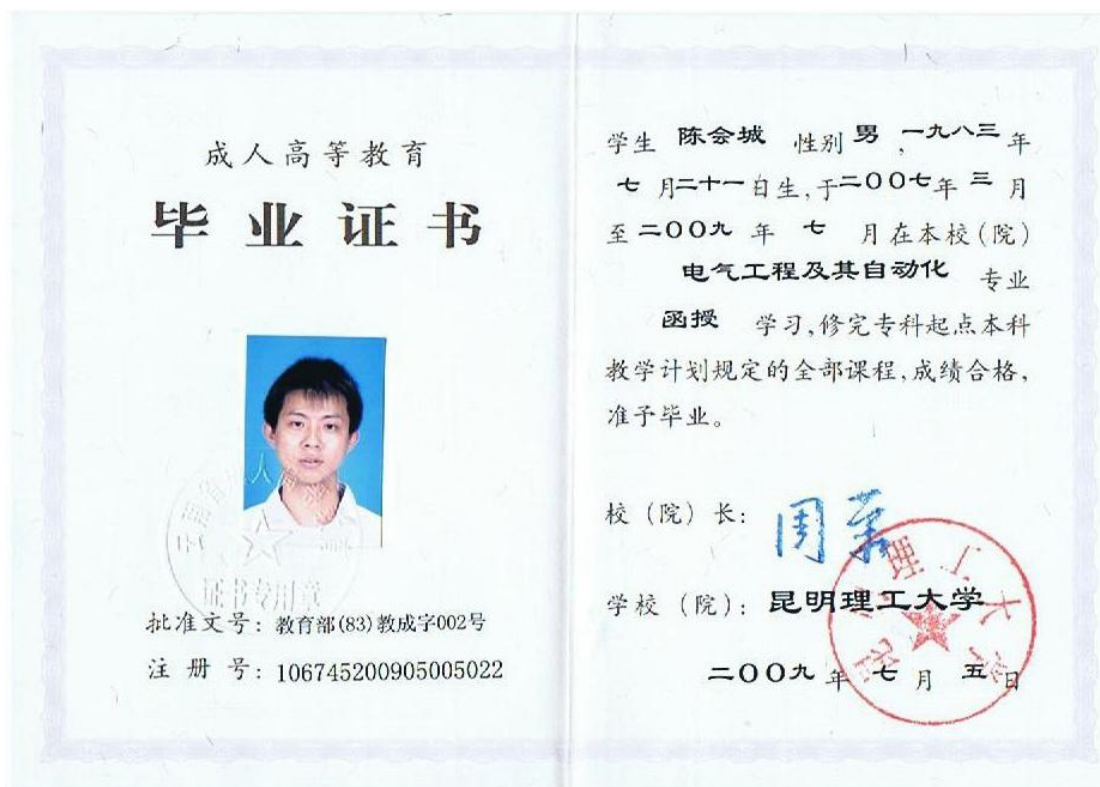 成人高等教育
毕业证书
证书专用章
批准文号：教育部(83)教成字002号
注 册 号：106745200905005022
学生 陈会城 性别 男，一九八三年
七月二十一日生，于二〇〇七年三月
至二〇〇九年七月在本校（院）
电气工程及其自动化 专业
函授 学习，修完专科起点本科
教学计划规定的全部课程，成绩合格，
准予毕业。
校（院）长：周荣
学校（院）：昆明理工大学
昆明理工大学
二〇〇九年七月五日